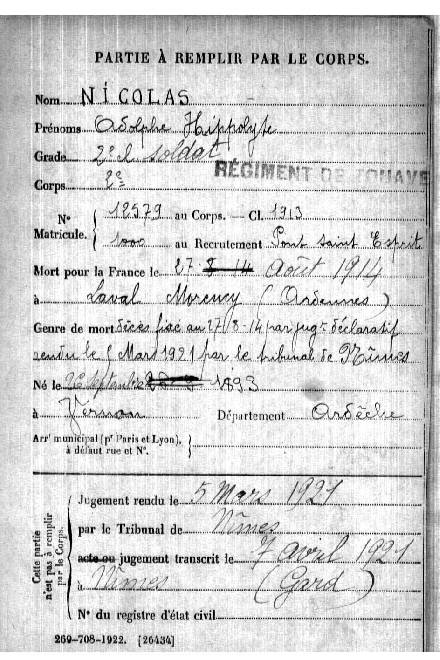 PARTIE À REMPLIR PAR LE CORPS.
Nom NICOLAS
Prénoms Adolphe Hippolyte
Grade 2e cl soldat
Corps 2e RÉGIMENT DE ZOUAVE
N° Matricule. 12579 au Corps. — Cl. 1913
1000 au Recrutement Pont Saint Esprit
Mort pour la France le 27 8 14 Août 1914
à Laval Morency (Ardennes)
Genre de mort décès fixé au 27/8-14 par jugt déclaratif
rendu le 5 Mars 1921 par le tribunal de Nîmes
Né le Septembre 1893
à Vernon Département Ardèche
Arrt municipal (pr Paris et Lyon),
à défaut rue et N°.
Cette partie n'est pas à remplir par le Corps.
Jugement rendu le 5 Mars 1921
par le Tribunal de Nîmes
acte ou jugement transcrit le 7 avril 1921
à Nîmes (Gard)
N° du registre d'état civil
269-708-1922. [26434]